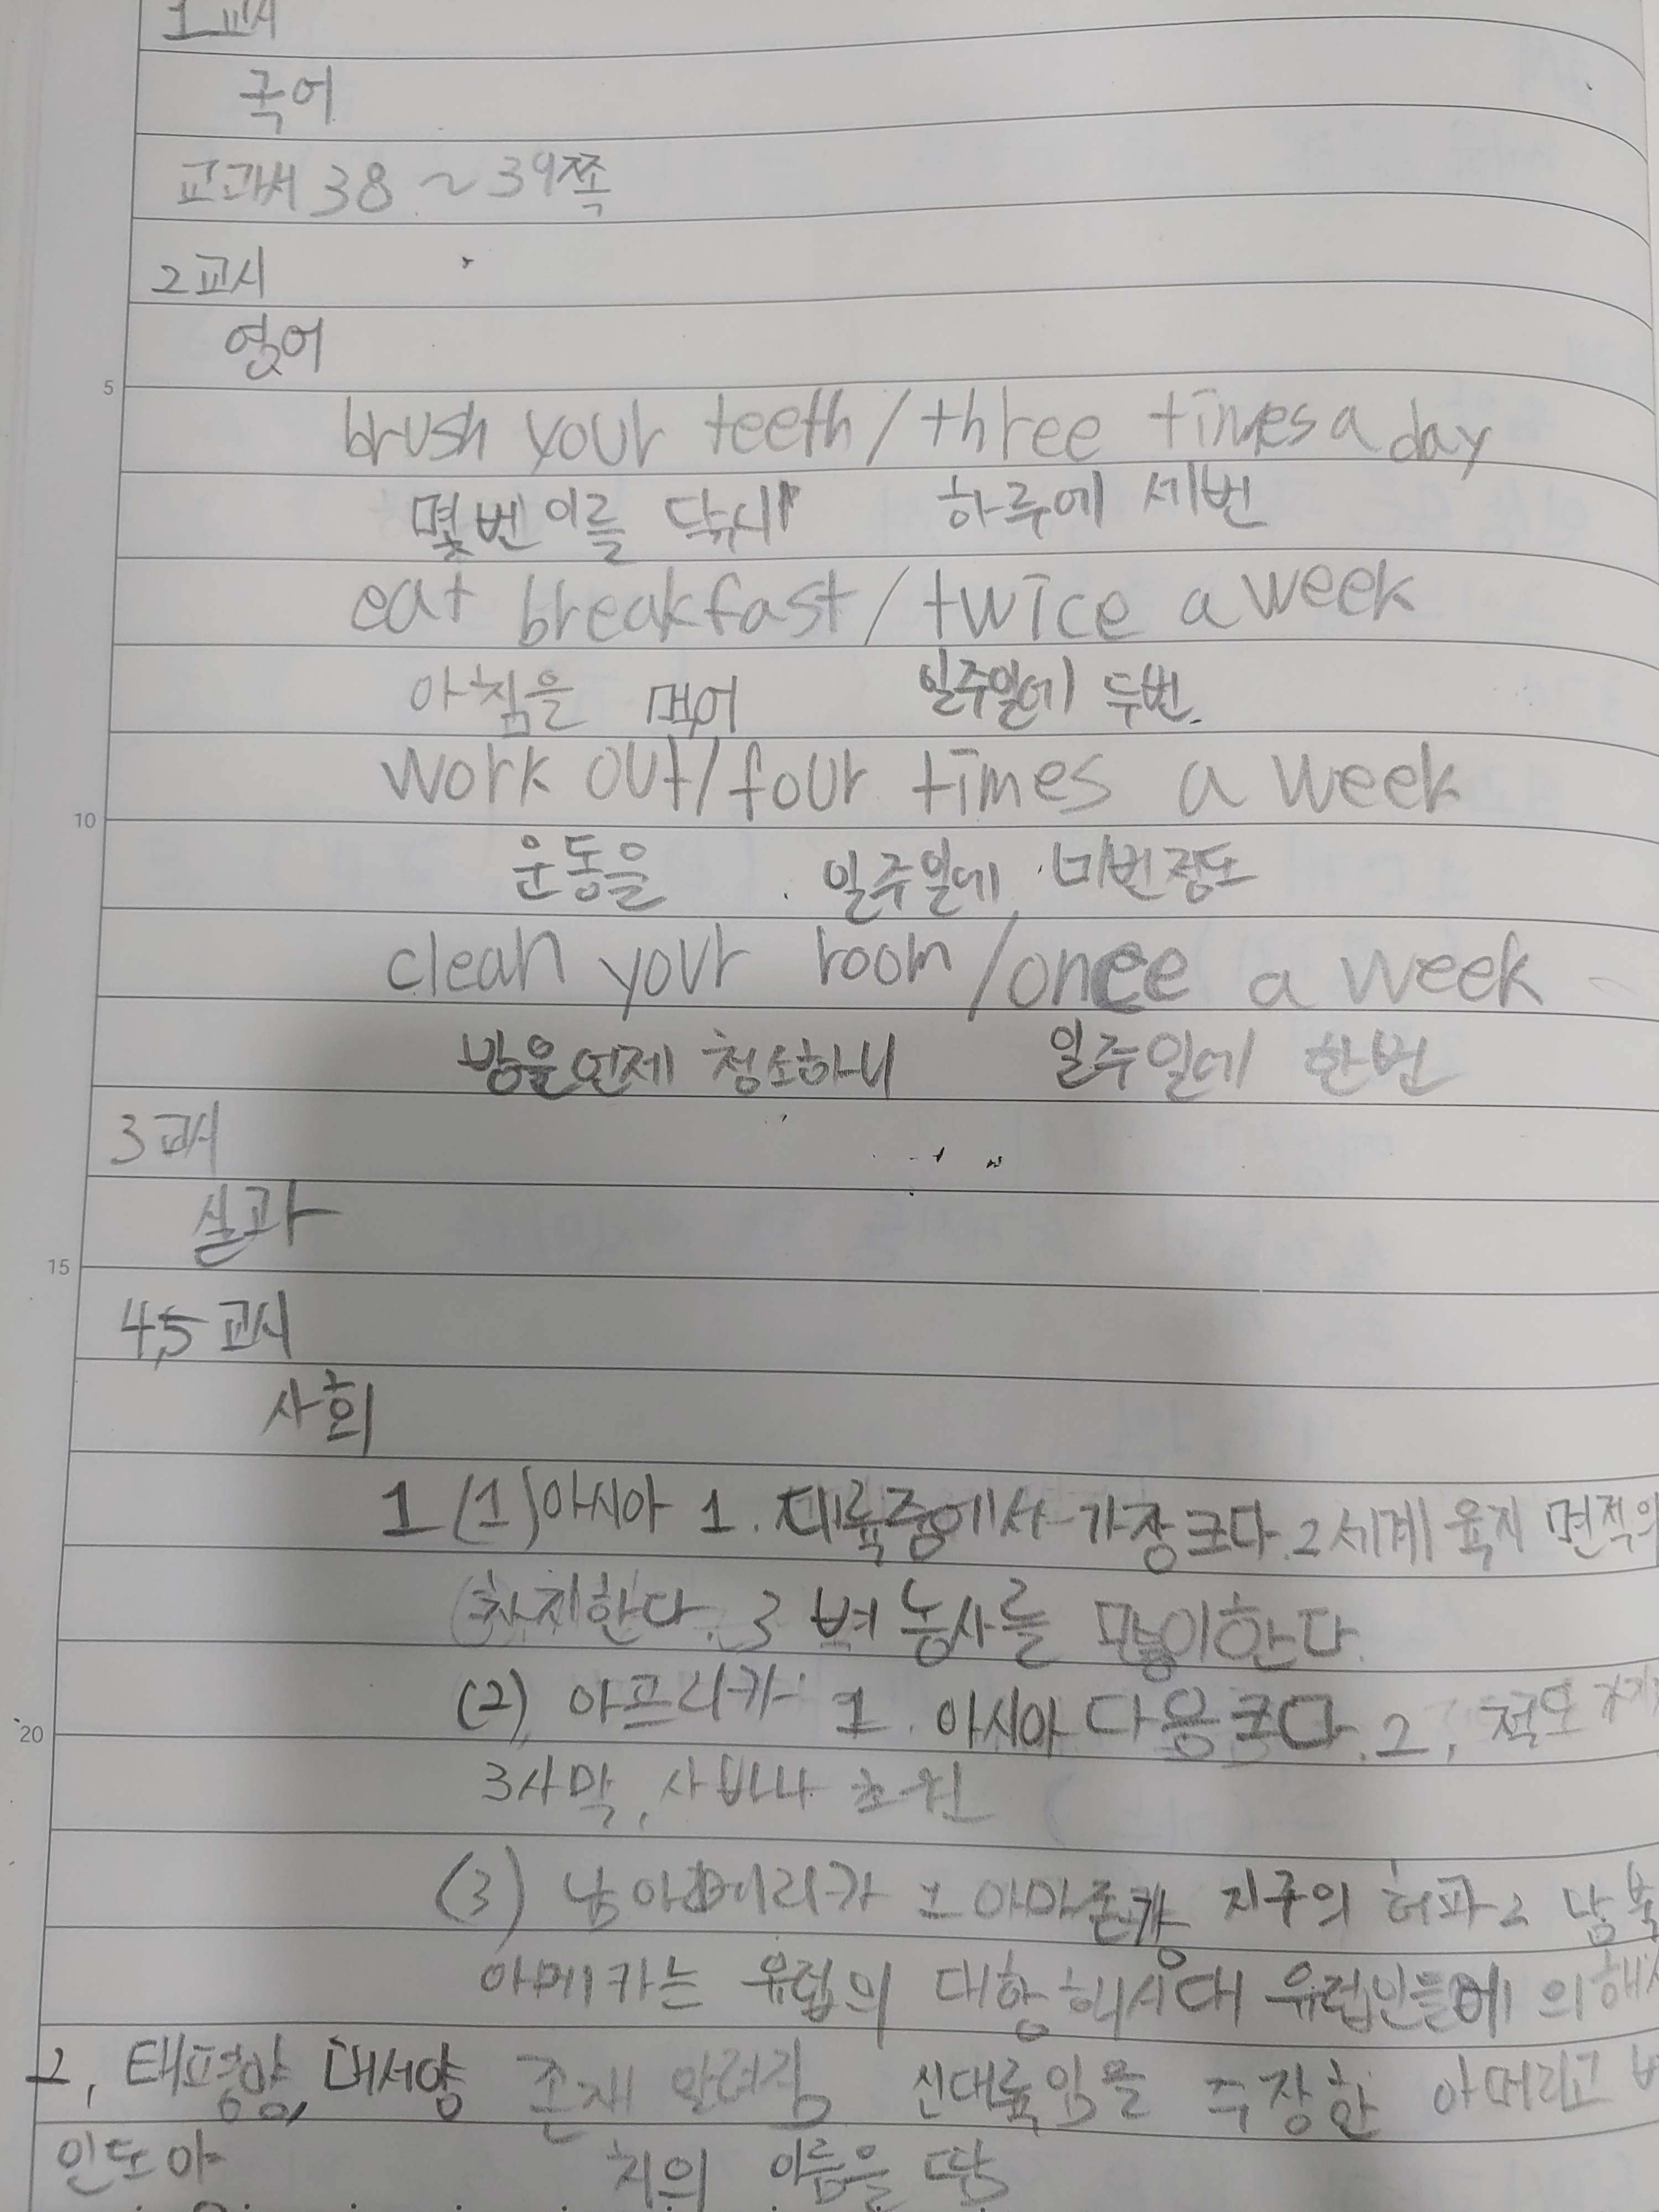 1교시
국어
교과서 38 ~ 39쪽
2교시
영어
brush your teeth / three times a day
몇번 이를 닦니 하루에 세번
eat breakfast / twice a week
아침을 먹어 일주일에 두번.
work out / four times a week
운동을 일주일에 네번정도
clean your room / once a week
방을 언제 청소하니 일주일에 한번
3교시
실과
4,5교시
사회
1 (1) 아시아 1. 대륙중에서 가장 크다. 2 세계 육지 면적의
차지한다. 3 벼 농사를 많이한다.
(2) 아프리카 1. 아시아 다음 크다. 2. 적도
3 사막, 사바나 초원
(3) 남아메리카 1 아마존강 지구의 허파 2 남북
아메카는 유럽의 대항해시대 유럽인들에 의해서
2, 태평양, 대서양 존재 알려짐 신대륙임을 주장한 아메리고
인도야 치의 이름을 땀